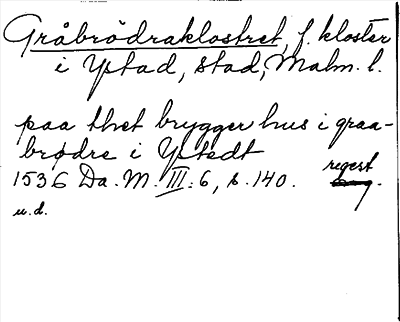 Gråbrödraklostret, f. kloster
i Ystad, stad, Malm. l.
paa thet brygger hus i graa-
brødre i Ystedt
1536 Da. M. III: 6, s. 140. regest
u.d.